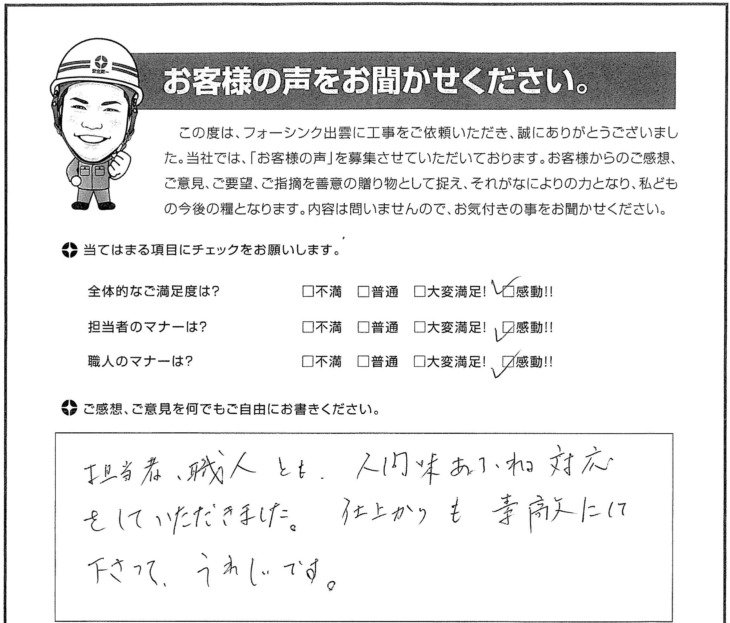 お客様の声をお聞かせください。
この度は、フォーシンク出雲に工事をご依頼いただき、誠にありがとうございまし
た。当社では、「お客様の声」を募集させていただいております。お客様からのご感想、
ご意見、ご要望、ご指摘を善意の贈り物として捉え、それがなによりの力となり、私ども
の今後の糧となります。内容は問いませんので、お気付きの事をお聞かせください。
当てはまる項目にチェックをお願いします。
全体的なご満足度は? □不満 □普通 □大変満足! ☑感動!!
担当者のマナーは? □不満 □普通 □大変満足! ☑感動!!
職人のマナーは? □不満 □普通 □大変満足! ☑感動!!
ご感想、ご意見を何でもご自由にお書きください。
担当者、職人とも、人間味あふれる対応
をしていただきました。仕上がりも素敵にして
下さって、うれしいです。